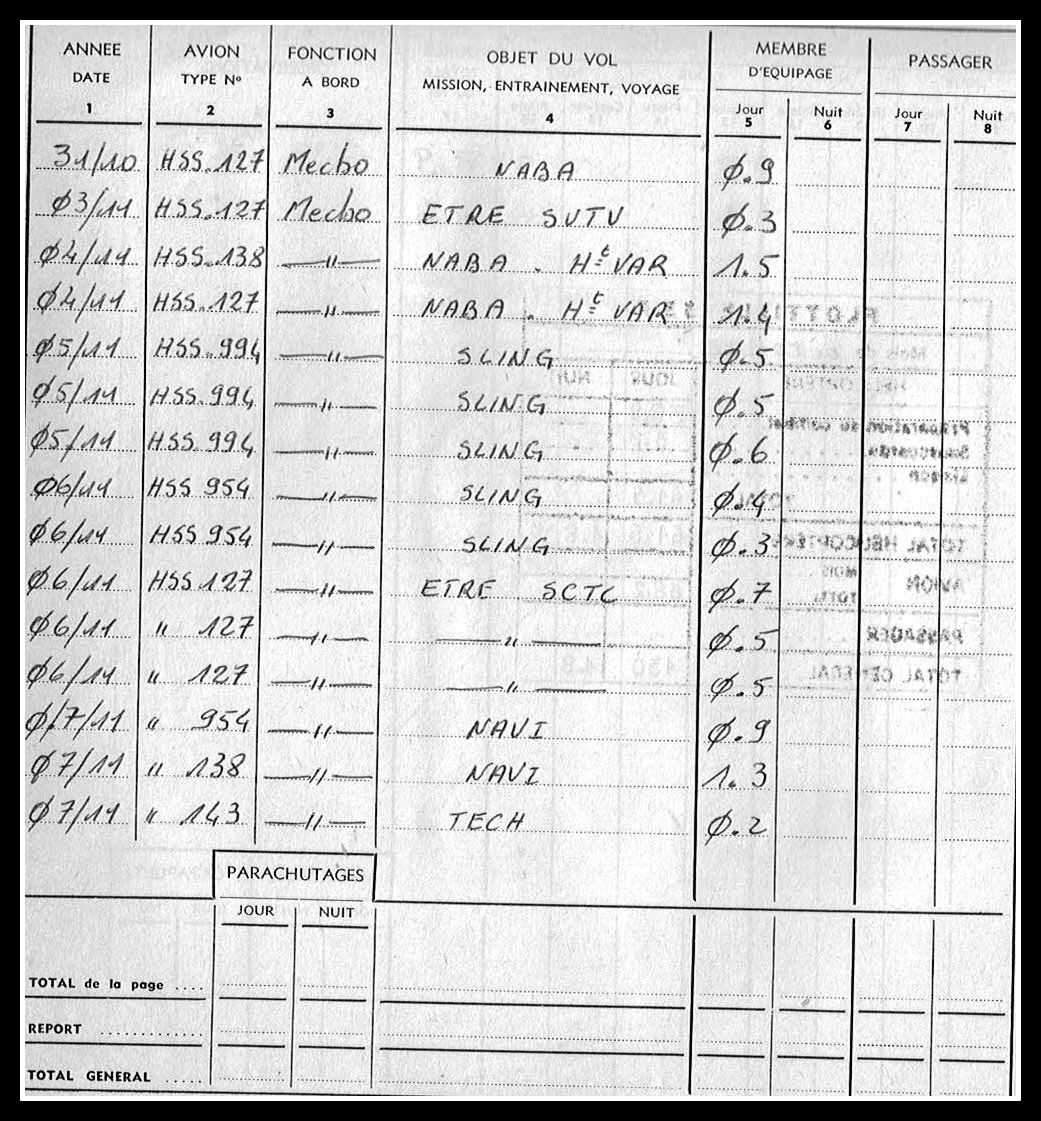 ANNEE AVION FONCTION OBJET DU VOL MEMBRE PASSAGER
DATE TYPE Nº A BORD MISSION, ENTRAINEMENT, VOYAGE D'EQUIPAGE
Jour Nuit Jour Nuit
1 2 3 4 5 6 7 8
31/10 HSS.127 Mecbo NABA Ø.9
Ø3/11 HSS.127 Mecbo ETRE SUTU Ø.3
Ø4/11 HSS.138 —"— NABA . Hᵗ VAR 1.5
Ø4/11 HSS.127 —"— NABA . Hᵗ VAR 1.4
Ø5/11 HSS.994 —"— SLING Ø.5
Ø5/11 HSS.994 —"— SLING Ø.5
Ø5/11 HSS.994 —"— SLING Ø.6
Ø6/11 HSS 954 —"— SLING Ø.4
Ø6/11 HSS 954 —"— SLING Ø.3
Ø6/11 HSS.127 —"— ETRE SCTC Ø.7
Ø6/11 " 127 —"— —"— Ø.5
Ø6/11 " 127 —"— —"— Ø.5
Ø7/11 " 954 —"— NAVI Ø.9
Ø7/11 " 138 —"— NAVI 1.3
Ø7/11 " 143 —"— TECH Ø.2
PARACHUTAGES
JOUR NUIT
TOTAL de la page ....
REPORT ............
TOTAL GENERAL .....